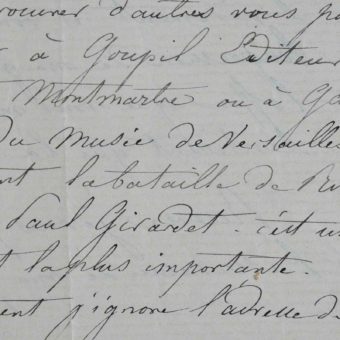 procurer d'autres vous po
à Goupil Editeur
Montmartre ou à Ga
Du Musée de Versailles
nt la bataille de Ri
Paul Girardet. c'est u
t la plus importante.
ent j'ignore l'adresse de